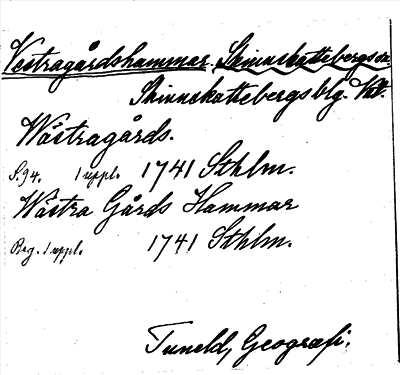 Vestragårdshammar. Skinnskattebergs sn
Skinnskattebergs blg. Vstm.
Wästragårds.
S. 94. 1 uppl. 1741 Sthlm.
Wästra Gårds Hammar
Reg. 1 uppl. 1741 Sthlm.
Tuneld, Geografi.